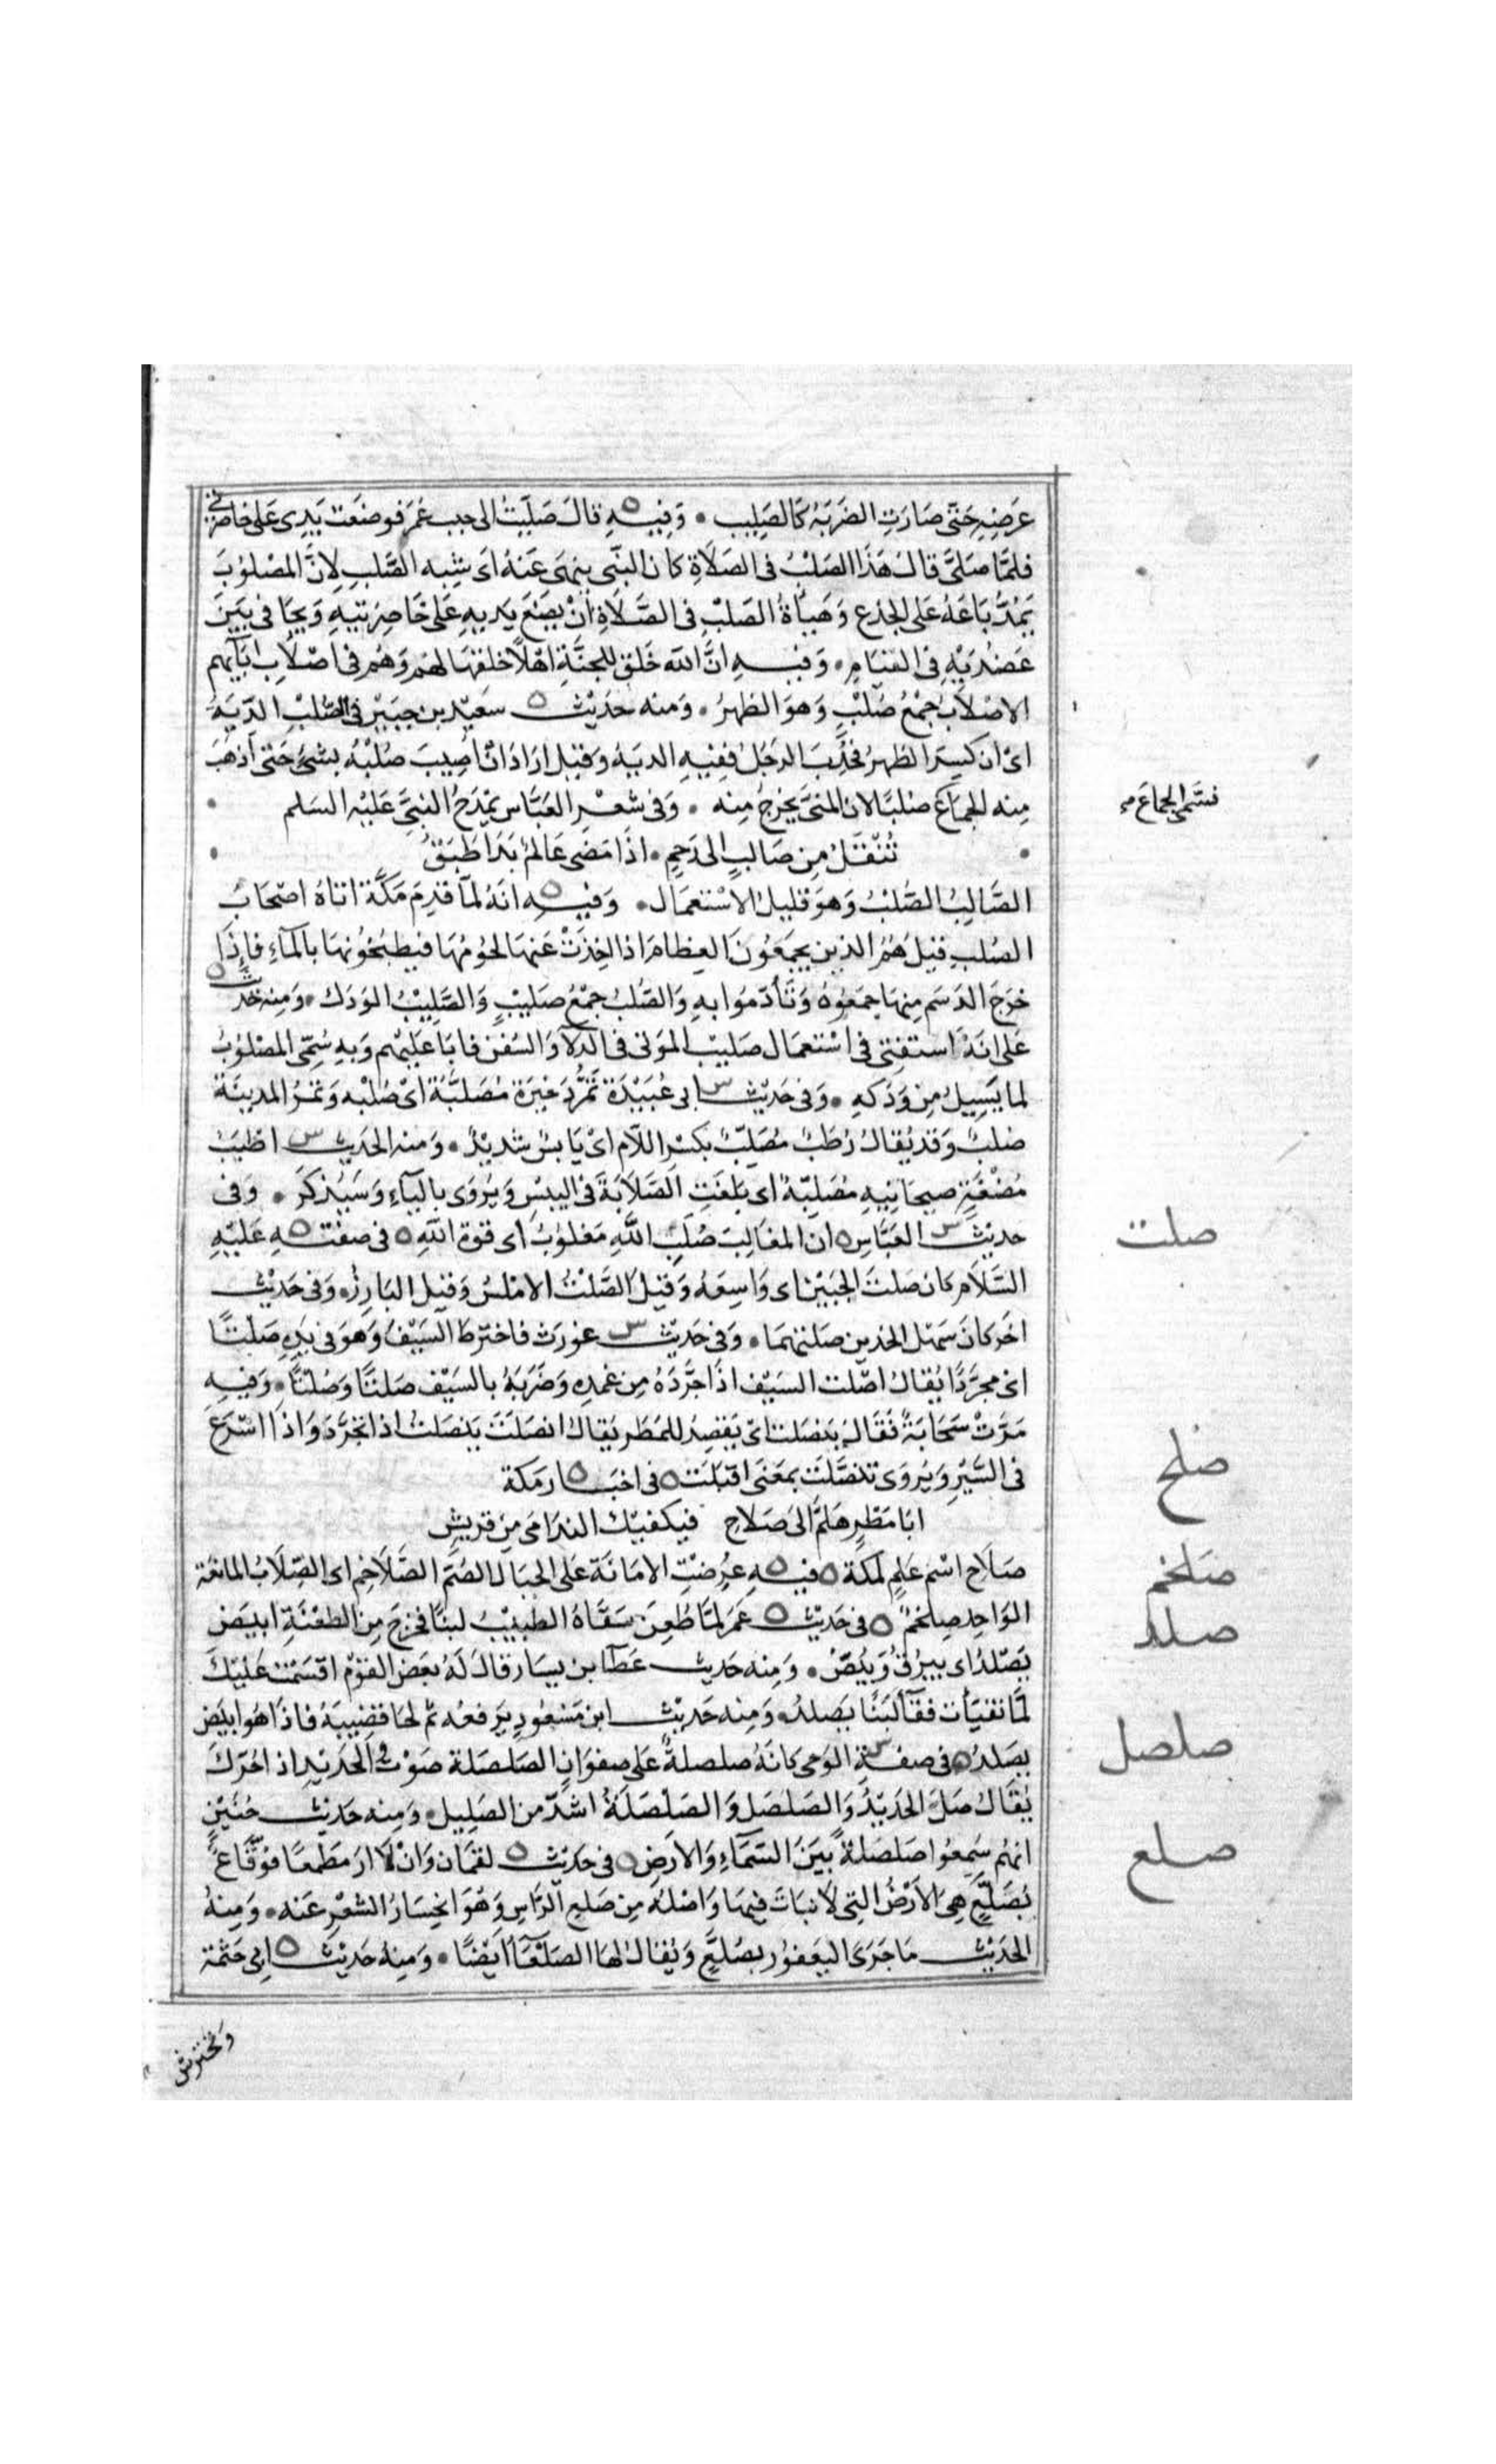 عَرضِهِ حَتّى صَارَتِ الضَربَهُ كَالصَلِيب • وَفِيهِ قالَ صَلَيتُ الى جب عُمَر فوضَعت يَدِى عَلى خاصِرتى
فلمَّا صَلىَّ قال هَذَا الصَلْبُ فى الصَلَاةِ كان النبَّى ينهَى عَنهُ اى شِبه الصَّلبِ لِانَّ المصْلوُبَ
يَمُدُّ بَاعَهُ عَلى الجذع وَهَيأةُ الصَلبْ فِى الصَّلَاةِ انْ يضَعَ يَديهِ عَلى خَاصِرَتيهِ وَيجَافى بَيَنَ
عَضُدَيْهِ فِى القيَامِ • وَفيهِ انَّ الله خَلق للجنَّةِ اهْلاً خلقهَا لهَم وَهُم فى اصْلَابِ ابَآيهم
الاصْلَابُ جمْعُ صُلْبٍ وَهوَ الظهرُ • وَمنه حَديْث سَعيْد بن جبَيْر فى الصُلبِ الدّيَةُ
اىْ ان كسِرَ الظهرُ فحُدِبَ الرجَلُ ففِيهِ الديَهُ وَقيل ارَادَ انْ اُصِيبَ صُلبُهُ بشىٍْ حَتى اُذهبَ
مِنه الجماعَ صُلبًا لان المنىَّ يخرجُ مِنه • وَفى شعْرِ العَبَّاس يمْدَحُ النبِىَّ عَليْه السَلم
فسَّمى الجماعَ
تُنْقَلُ مِن صَالِبٍ الى رَحمٍ • اذَا مَضى عَالمٌ بَدَا طَبَقُ
الصَّالِبُ الصُّلبُ وَهوَ قليلُ الاسْتعمَال • وَفيهِ انَهُ لمآ قدِمَ مَكَّة اتاهُ اصْحَابُ
الصُلبِ قيلَ هُمُ الذين يجمَعُونَ العِظامَ اذا اخِذَتْ عَنهَا لحُومُهَا فيطبخُونهَا بالمآءِ فاِذَا
خرَجَ الدَسَم مِنهَا جمَعُوهُ وَتَأدّمُوا بهِ وَالصُلبُ جمْعُ صَليْبٍ وَالصَّلِيْبُ الوَدَك • وَمِنه حَديث
عَلى انَهُ استفتىَ فى اسْتعمَال صَليب المَوتى فى الدلآ وَالسُفن فابَا عَليْهم وَبهِ سُمّى المصْلوُبُ
لما يَسِيلُ مِن وَدَكهِ • وَفى حَديْث ابى عُبَيْدَة تمْرُ ذَخيرَة مُصَلّبَة اىْ صُلبْه وَتمْرُ المدينَة
صُلبٌ وَقد يُقالُ رُطَبٌ مُصَلّبٌ بكسْر اللّام اىْ يَابسٌ شَديْدٌ • وَمنه الحَديث اطيَبُ
مُضْغَةٍ صيحَانِيهٍ مُصَلِبّةٌ اى بَلغتِ الصَّلَابَةَ فى اليبسِ وَيُرْوَى بالياءِ وَسَيُذكرُ • وَفى
حديْث العَبَّاس ان المغَالِبَ صُلبَ اللَّهِ مَغلوُبُ اى قوَة اللهِ ٥ فى صفته عَليْهِ
صلت
السَّلَام كان صَلتَ الجَبيْن اى وَاسِعَهُ وَقيل الصَّلتُ الامْلسُ وَقيل البَارِزُ • وَفى حَديْث
اخَر كَانَ سَهْل الخدين صَلتهمَا • وَفى حَديْث غورَث فاخترطَ السَيْفَ وَهوَ فى يَدِهِ صَلتًا
اى مجرَّدًا يُقالُ اصْلت السَيْف اذَا جرَّدَهُ مِن غمدِهِ وَضَرَبَهُ بالسَيْف صَلتًا وَصُلتًا • وَفيهِ
مَرَّتْ سَحَابَةٌ فقَال ينصَلت اى يَقصِدُ للمَطَر يُقالُ انصَلتَ يَنصَلتُ اذا تجَرَّدَ وَاذَا اسْرَعَ
فى السَّيْرِ وَيُروَى تنصَّلَت بمعَنى اقبَلَت ٥ فى اخبَار مَكة
صلح
ابَا مَطَرٍ هَلمَّ الىَ صَلاح فيكفيْك الندَامَى مِن قريْشٍ
صَلَاح اسْم عَلمٍ لمكة ٥ فيهِ عُرِضَتِ الامَانَة عَلى الجبَال الصُّمّ الصَّلَاخم اى الصِّلَابُ المانعَة
صلخم
الوَاحِد صِلخمٌ ٥ فى حَديْث عُمَر لمّا طُعِنَ سَقَاهُ الطبيْبُ لبنًا فخرَجَ مِن الطعْنَةِ ابيَض
صلد
يَصْلدُ اى يبرُقُ وَيَبصّ • وَمِنه حَديث عَطَآ بن يسَار قالَ لَهُ بعَض القوْم اقسَمت عَليْك
لمَّا تقيأت فقآ لَبَنًا يَصلدُ • وَمنه حَديْث ابن مَسْعُودٍ يَرفعُه ثم لحَا قضِيبَهُ فاذا هُو ابيَض
يصَلدُ ٥ فى صفةِ الوَحى كانَهُ صلصلةٌ عَلى صفوَان الصَلصَلة صَوْت الحَديدِ اذ احُرّكَ
صلصل
يُقَالُ صَلّ الحَديْدُ وَالصَلصَل وَالصَلْصَلَةُ اشدّ من الصَلِيل • وَمِنه حَديث حُنَيْنٍ
انهُم سَمِعُوا صَلصَلةً بَيَنَ السَّمَآءِ وَالارَضِ ٥ فى حَديْث لقمَان وَانْ لَا ارَ مَطمَعًا فوَقَّاعٌ
صلع
بُصَلَّعٍ هِىَ الارَضُ التِى لا نبَاتَ فيهَا وَاصْلهُ مِن صَلعِ الرَّاسِ وَهُوَ انحِسَارُ الشعْرِ عَنه • وَمِنهُ
الحَديْث مَا جَرَى اليَعفوُر بصُلَعٍّ وَيُقالُ لها الصَلْعَآ ايَضًا • وَمِنهُ حَديْث ابى حَثمْة
وَتحترش